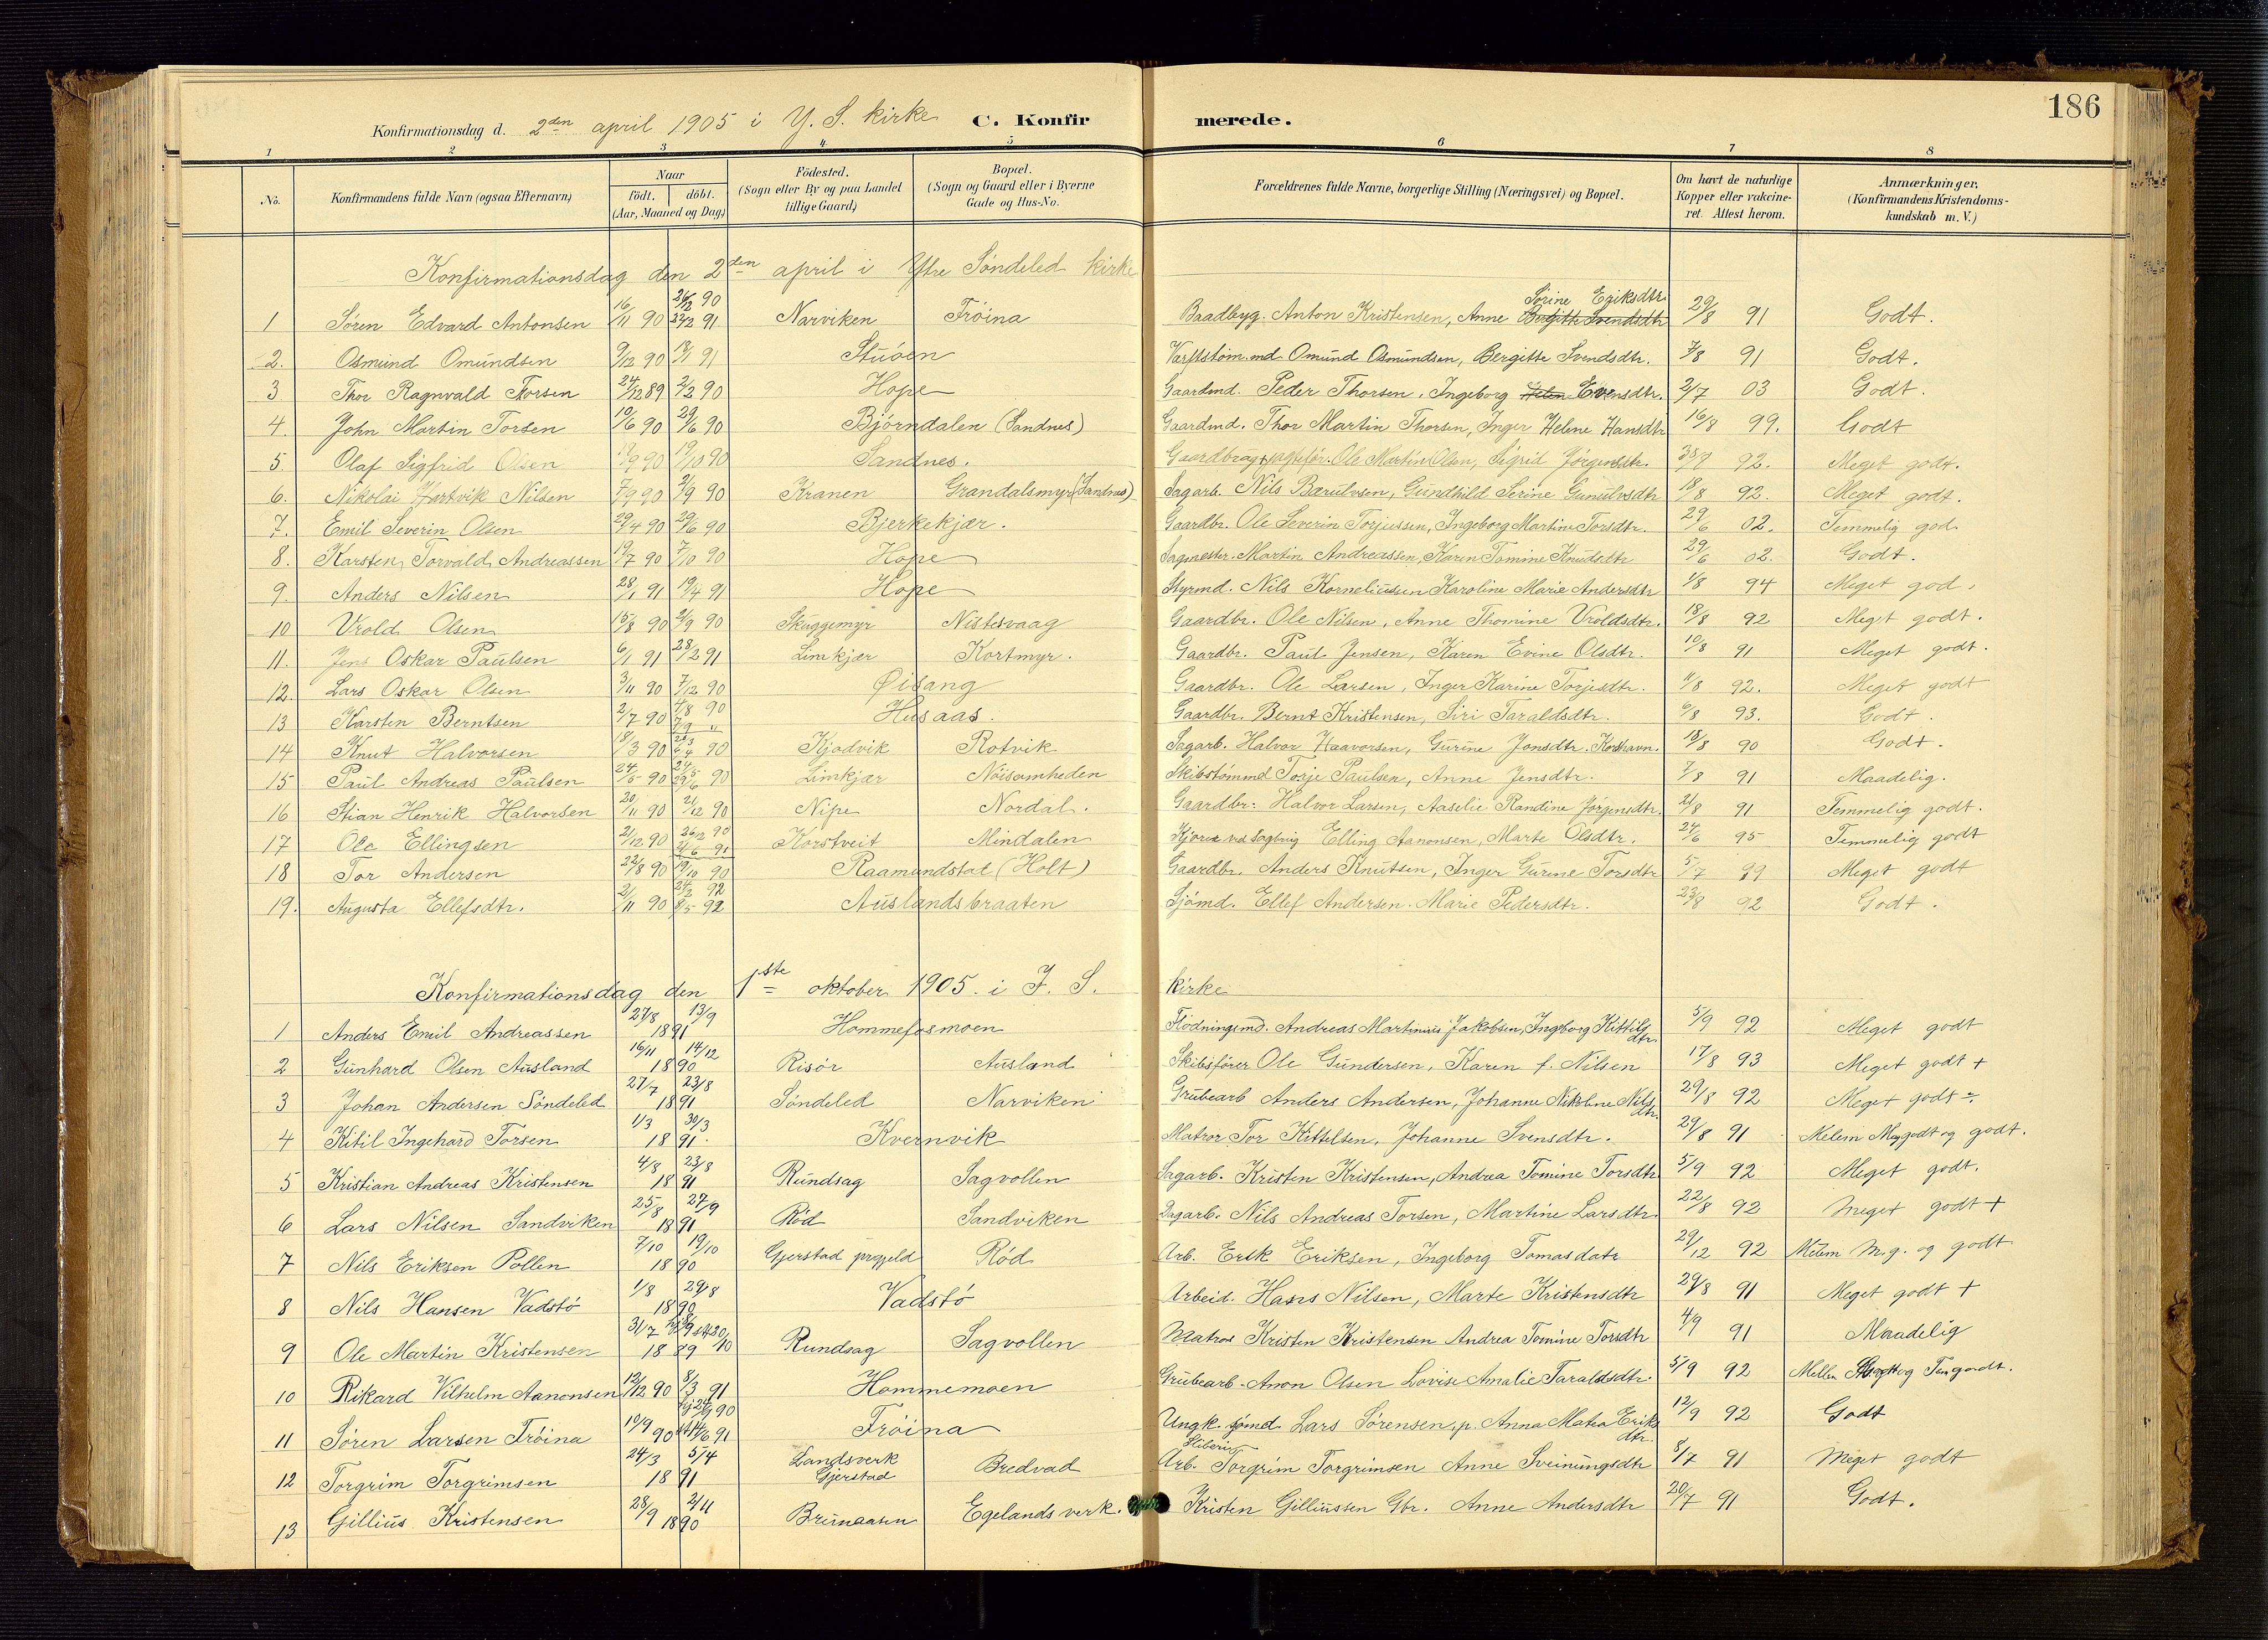 186
Konfirmationsdag d. 2den april 1905 i Y. S. kirke C. Konfir merede.
1 2 3 4 5 6 7 8
No. Konfirmandens fulde Navn (ogsaa Efternavn) Naar födt. döbt. (Aar, Maaned og Dag) Födested. (Sogn eller By og paa Landet tillige Gaard) Bopæl. (Sogn og Gaard eller i Byerne Gade og Hus-No. Forældrenes fulde Navne, borgerlige Stilling (Næringsvei) og Bopæl. Om havt de naturlige Kopper eller vakcineret. Attest herom. Anmærkninger. (Konfirmandens Kristendomskundskab m. V.)
Konfirmationsdag den 2den april i Ytre Söndeled kirke
1 Sören Edvard Antonsen 16/11 90 26/12 90 22/2 91 Narviken Fröina Baadbyg. Anton Kristensen, Anne Bergitte Svendsdtr Sörine Eriksdtr. 29/8 91 Godt.
2. Osmund Omundsen 9/12 90 18/1 91 Stuöen Værftstöm.md Omund Osmundsen, Bergitte Svendsdtr. 7/8 91 Godt.
3 Thor Ragnvald Torsen 24/12 89 2/2 90 Hope Gaardmd. Peder Thorsen, Ingeborg Helen Evensdtr. 2/7 03 Godt.
4. John Martin Torsen 10/6 90 29/6 90 Björndalen (Sandnes) Gaardmd. Thor Martin Thorsen, Inger Helene Hansdtr 16/8 99. Godt
5. Olaf Sigfrid Olsen 19/9 90 19/10 90 Sandnes. Ole Martin Olsen, Sigrid Jörgensdtr. 92. Meget godt.
6. Nikolai Hartvik Nilsen 7/9 90 21/9 90 Kranen Grandalsmyr (Sandnes) Sagarb. Nils Bærulvsen, Gundhild Serine Gunulvsdtr 18/8 92. Meget godt.
7. Emil Severin Olsen 29/4 90 29/6 90 Bjerkekjær. Gaardbr. Ole Severin Torjussen, Ingeborg Martine Torsdtr. 29/6 02. Temmelig god.
8. Karsten Torvald Andreassen 19/7 90 7/10 90 Hope Sagmester. Martin Andreassen, Karen Tomine Knudsdtr 29/6 02. Godt.
9. Anders Nilsen 28/1 91 19/4 91 Hope Styrmd. Nils Korneliussen Karoline Marie Andersdtr 1/8 94 Meget god.
10 Vrold Olsen 15/8 90 21/9 90 Skuggemyr Nistesvaag Gaardbr. Ole Nilsen, Anne Thomine Vroldsdtr. 18/8 92 Meget godt.
11. Jens Oskar Paulsen 6/1 91 28/2 91 Limkjær Kortmyr. Gaardbr. Paul Jensen, Karen Evine Olsdtr. 10/8 91 Meget godt.
12. Lars Oskar Olsen 3/11 90 7/12 90 Øisang Gaardbr. Ole Larsen, Inger Karine Torjesdtr. 11/8 92. Meget godt
13 Karsten Berntsen 2/7 90 4/8 90 7/9 " Husaas. Gaardbr. Bernt Kristensen, Siri Taraldsdtr. 6/8 93. Godt.
14 Knut Halvorsen 18/3 90 6/4 90 Kjødvik Rotvik Sagarb. Halvor Haavorsen, Gurine Jonsdtr. Korshavn. 18/8 90 Godt.
15 Paul Andreas Paulsen 24/5 90 29/6 90 Limkjær Nöisomheden Skibstömmd Torje Paulsen, Anne Jensdtr. 7/8 91 Maadelig.
16 Stian Henrik Halvorsen 20/11 90 21/12 90 Nipe Nordal. Gaardbr. Halvor Larsen, Aaselie Randine Jörgensdtr. 21/8 91 Temmelig godt.
17 Ole Ellingsen 2/12 90 26/12 90 2/6 91 Korstveit Mindalen Kjörer ved Sagbrug Elling Aanonsen, Marte Olsdtr. 24/6 95 Temmelig godt
18 Tor Andersen 22/8 90 19/10 90 Raamundstad (Holt) Gaardbr. Anders Knutsen, Inger Gurine Torsdtr 5/7 99 Meget godt
19. Augusta Ellefsdtr. 2/11 90 24/2 92 8/5 92 Auslandsbraaten Sjömd. Ellef Andersen. Marie Pedersdtr. 23/8 92 Godt.
Konfirmationsdag den 1ste oktober 1905. i I. S. kirke
1 Anders Emil Andreassen 27/8 13/9 1891 Hommefosmoen Flödningsmd. Andreas Martinius Jakobsen, Ingeborg Kittilsdtr. 5/9 92 Meget godt
2 Gunhard Olsen Ausland 16/11 14/12 1890 Risör Ausland Skibsförer Ole Gundersen, Karen f. Nilsen 17/8 93 Meget godt +
3 Johan Andersen Söndeled 27/7 23/8 1891 Söndeled Narviken Grubearb Anders Andersen, Johanne Nikoline Nilsdtr. 29/8 92 Meget godt ÷
4 Kitil Ingehard Torsen 1/3 30/3 1891. Kvernvik Matros Tor Kittelsen, Johanne Svensdtr. 29/8 91 Melem Meg godt og godt.
5 Kristian Andreas Kristensen 4/8 23/8 1891 Rundsag Sagvollen Sagarb. Kristen Kristensen, Andrea Tomine Torsdtr 5/9 92 Meget godt.
6 Lars Nilsen Sandviken 25/8 27/9 1891 Röd Sandviken Dagarb. Nils Andreas Torsen, Martine Larsdtr. 22/8 92 Meget godt +
7 Nils Eriksen Pollen 7/10 19/10 1890 Gjerstad prgjeld Röd Arb. Erik Eriksen, Ingeborg Tomasdatr 29/12 92 Melem M.g. og godt
8 Nils Hansen Vadstö 1/8 29/8 1890 Vadstö Arbeid. Hans Nilsen, Marte Kristensdtr 29/8 91 Meget godt +
9 Ole Martin Kristensen 31/7 1889 Rundsag Sagvollen Matros Kristen Kristensen Andrea Tomine Torsdtr 4/9 91 Maadelig
10 Rikard Vilhelm Aanonsen 12/12 90 8/3 91 Hommemoen Grubearb. Anon Olsen Lovise Amalie Taraldsdtr. 5/9 92 godt.
11 Sören Larsen Fröina 19/9 90 Fröina Ungk. sömd. Lars Sörensen, p. Anna Matea Eriksdtr. 12/9 92 Godt
12 Torgrim Torgrimsen 24/3 5/4 1891 Landsverk Gjerstad Bredvad Sliberi Arb. Torgrim Torgrimsen Anne Sveinungsdtr 8/7 91 Meget godt
13 Gillius Kristensen 28/9 2/11 1890 Brunaasen Egelands verk. Kristen Gilliussen Gbr. Anne Andersdtr 20/7 91 Godt.